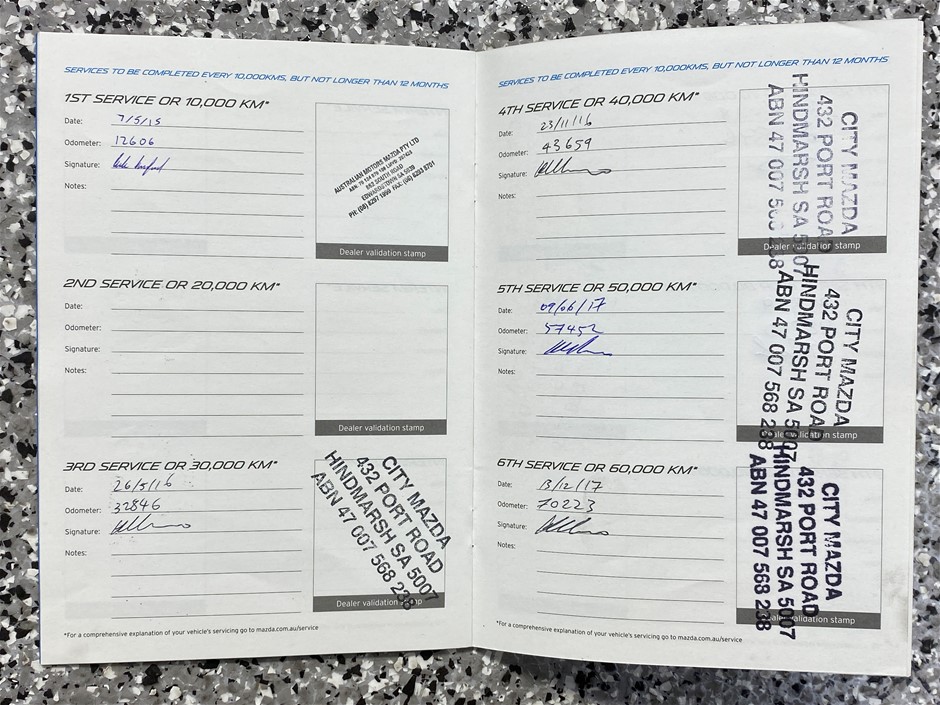 SERVICES TO BE COMPLETED EVERY 10,000KMS, BUT NOT LONGER THAN 12 MONTHS
1ST SERVICE OR 10,000 KM*
Date: 7/5/15
Odometer: 12606
Signature:
Notes:
AUSTRALIAN MOTORS MAZDA PTY LTD
EDWARDSTOWN SA 5039
PH: (08) 8297 1999 FAX: (08) 8293 8701
Dealer validation stamp
2ND SERVICE OR 20,000 KM*
Date:
Odometer:
Signature:
Notes:
Dealer validation stamp
3RD SERVICE OR 30,000 KM*
Date: 26/5/16
Odometer: 32846
Signature:
Notes:
CITY MAZDA
432 PORT ROAD
HINDMARSH SA 5007
ABN 47 007 568 238
Dealer validation stamp
*For a comprehensive explanation of your vehicle's servicing go to mazda.com.au/service
SERVICES TO BE COMPLETED EVERY 10,000KMS, BUT NOT LONGER THAN 12 MONTHS
4TH SERVICE OR 40,000 KM*
Date: 23/11/16
Odometer: 43659
Signature:
Notes:
CITY MAZDA
432 PORT ROAD
HINDMARSH SA 5007
ABN 47 007 568 238
Dealer validation stamp
5TH SERVICE OR 50,000 KM*
Date: 09/06/17
Odometer: 57452
Signature:
Notes:
CITY MAZDA
432 PORT ROAD
HINDMARSH SA 5007
ABN 47 007 568 238
Dealer validation stamp
6TH SERVICE OR 60,000 KM*
Date: 13/12/17
Odometer: 70223
Signature:
Notes:
CITY MAZDA
432 PORT ROAD
HINDMARSH SA 5007
ABN 47 007 568 238
Dealer validation stamp
*For a comprehensive explanation of your vehicle's servicing go to mazda.com.au/service